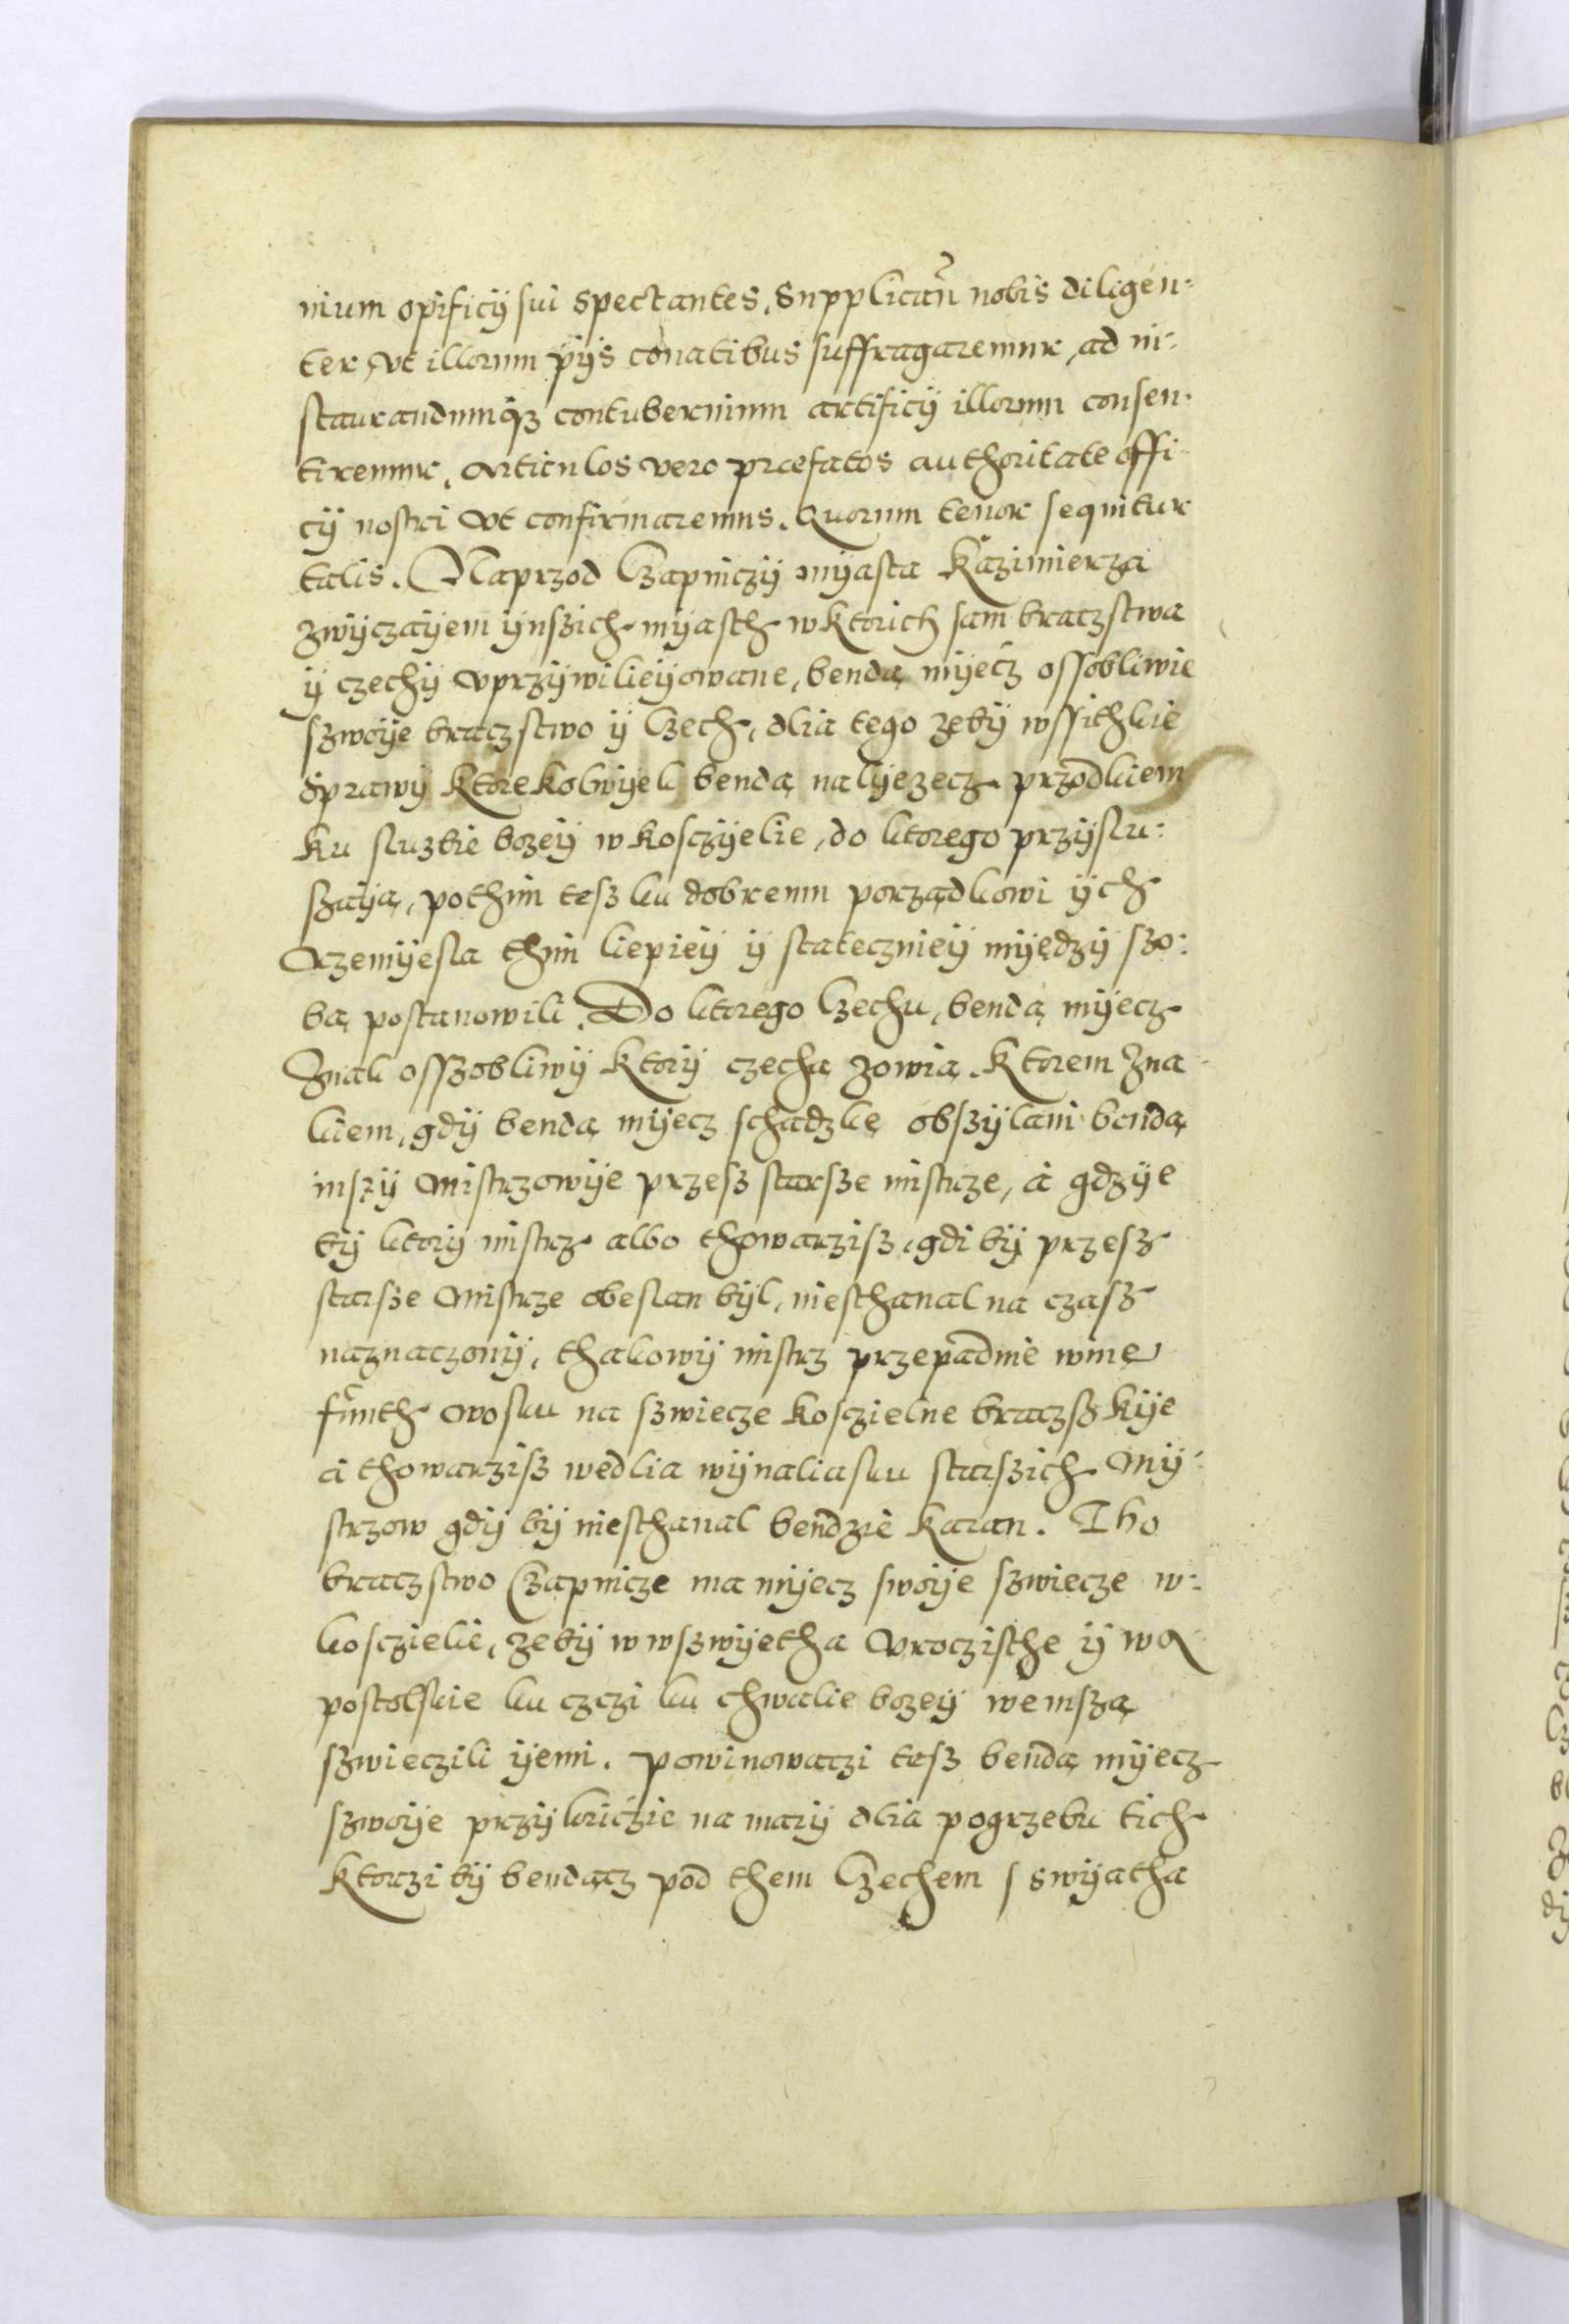 nium opificÿ sui spectantes, Supplicañ nobis diligen:
ter, vt illorum pÿs conatibus suffragaremur, ad in:
staurandumqз contubernium artificÿ illorum consen:
tiremur, Articulos vero præfatos authoritate offi:
cÿ nostri vt confirmaremus. Quorum tenor sequitur
talis. Naprzod Czapniczÿ mÿasta Kazimierza
zwÿczaÿem ÿnszich mÿasth w ktorich sam braczstwa
ÿ czechÿ vprzÿwilieÿowane, bendą mÿecz ossobliwie
szwoÿe braczstwo ÿ Czech, dlia tego zebÿ wssithkie
Sprawÿ ktorekolwÿek bendą nalÿezecz przodkiem
ku sluzbie bozeÿ w kosczÿelie, do ktorego przÿslu:
szaÿą, pothim tesz ku dobremu porządkowi ÿch
Rzemÿesla thim liepieÿ ÿ stateczniеÿ mÿedzÿ szo:
bą postanowili. Do ktorego Czechu, bendą mÿecz
Znak osszobliwÿ ktorÿ czechą zowią. Ktorem Zna:
kiem, gdÿ bendą mÿecz schadzkę obszÿlani bendą
inszÿ Mistrzowÿe przesz starsze mistrze, a gdzÿe
bÿ ktorÿ mistrz albo thowarzisz, gdi bÿ przesz
starsze Mistrze obeslan bÿl, niesthanal na czasz
naznaczonÿ, thakowÿ mistrz przepadnie winę
funth wosku na szwiecze kosczielne braczszkÿe
a thowarzisz wedlia wÿnaliasku starszich Mÿ:
strzow gdÿ bÿ niesthanal bendzie karan. Tho
braczstwo Czapnicze ma mÿecz swoÿe szwiecze w:
kosczielie, zebÿ w wszwÿetha vroczisthe ÿ w A
postolskie ku czczi ku chwalie bozeÿ we mszą
szwieczili ÿemi. powinowaczi tesz bendą mÿecz
szwoÿe przÿkriczie na marÿ dlia pogrzebu tich
ktorzi bÿ bendącz pod them Czechem s swÿatha